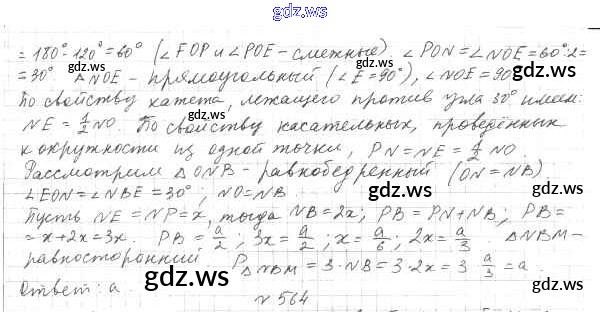 gdz.ws
= 180° - 120° = 60° (∠FOP и ∠POE - смежные). ∠PON = ∠NOE = 60°:2 =
= 30°. △NOE - прямоугольный (∠E = 90°), ∠NOE = 90°
По свойству катета, лежащего против угла 30° имеем:
NE = 1/2 NO. По свойству касательных, проведённых
к окружности из одной точки, PN = NE = 1/2 NO.
Рассмотрим △ONB - равнобедренный (ON = NB)
∠EON = ∠NBE = 30°; NO = NB.
Пусть NE = NP = x, тогда NB = 2x; PB = PN + NB; PB =
= x + 2x = 3x. PB = a/2; 3x = a/2; x = a/6; 2x = a/3. △NBM -
равносторонний P△NBM = 3·NB = 3·2x = 3 a/3 = a.
Ответ: a.
№ 564
gdz.ws
gdz.ws
gdz.ws
gdz.ws
gdz.ws
gdz.ws
gdz.ws
gdz.ws
gdz.ws